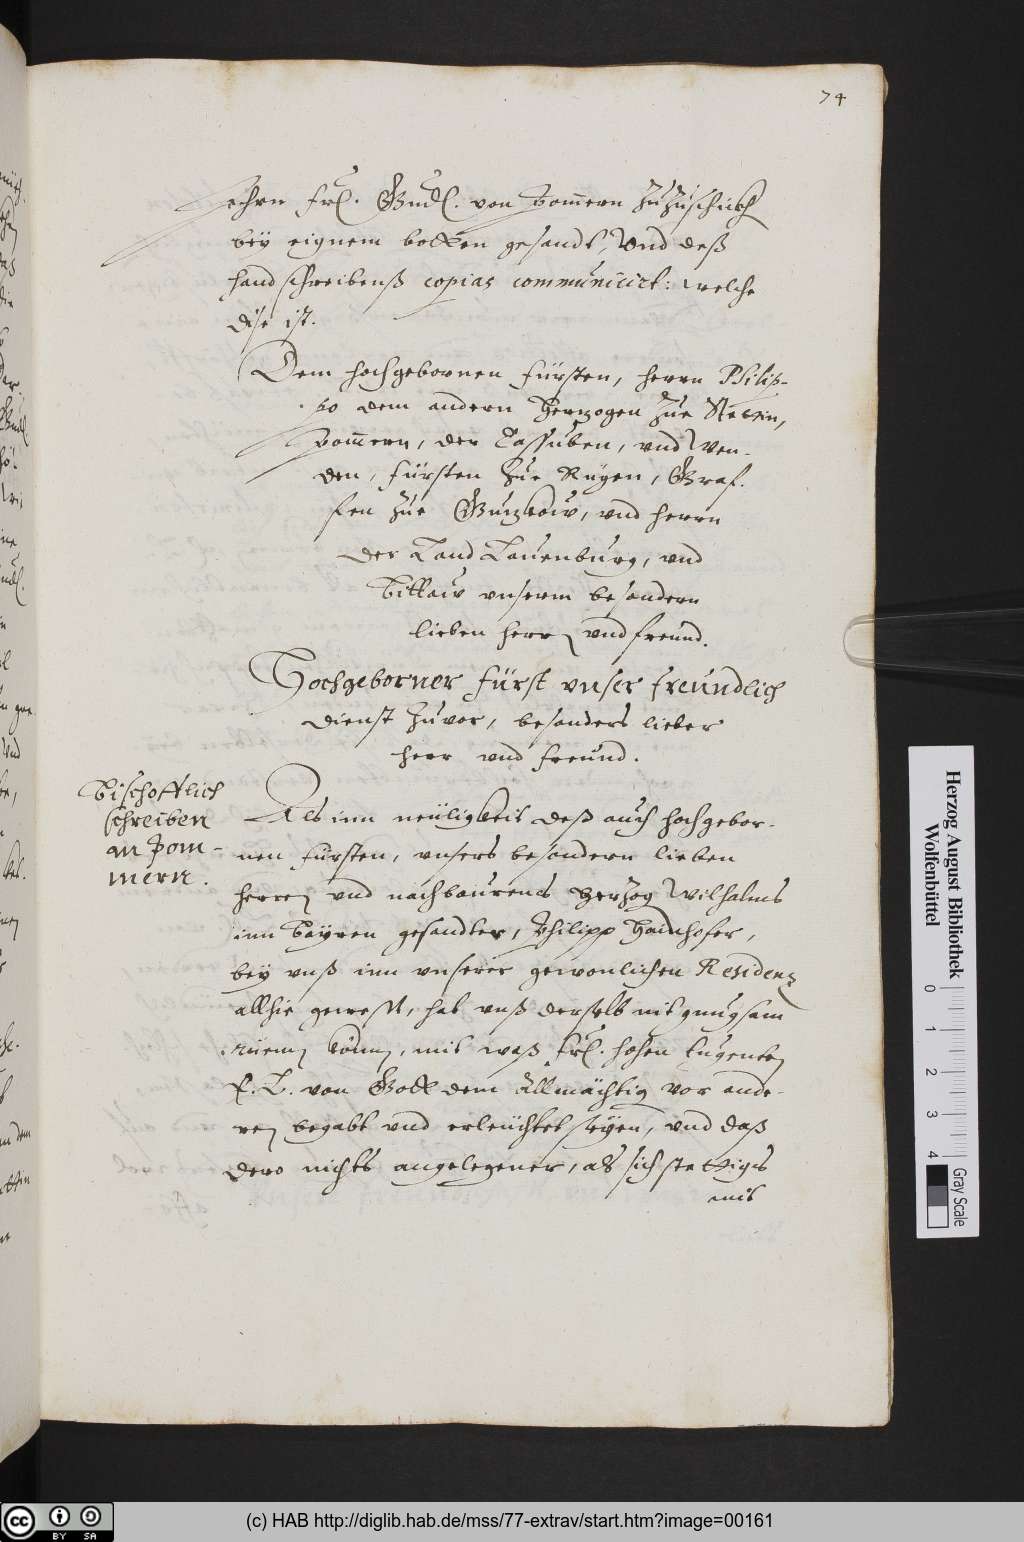 74
Jehrn frl. Gndl. von Pom̄ern zuzuschickh
bey eignem botten gesandt, Vnd deß
handschreibenß copias communicirt: welche
dise ist.
Dem hochgebornen fürsten, herrn Philip-
po dem andern Hertzogen zue Stettin,
Pom̄ern, der Cassuben, vnd Wen-
den, fürsten zue Rügen, Graf-
fen zue Gutzkow, vnd herrn
der Land Lauenburg, vnd
Bittaw vnserm besondern
lieben herrn vnd freund.
Hochgeborner fürst vnser freundlich
dienst zuvor, besonders lieber
herr vnd freund.
Bischofflich
schreiben
an Pom-
mern.
Als inn neüligkeit deß auch hochgebor-
nen fürsten, vnsers besondern lieben
herren vnd nachbaurens Herzog Wilhalms
inn Bayren gesandter, Philipp Hainhofer,
bey vnß inn vnserer gewonlichen Residenz
allhie gewest, hat vnß derselb nit gnugsam
rüemen können, mit waß frl. hohen tugenten
E. L. von Gott dem Allmächtig vor ande-
ren begabt vnd erleüchtet seyen, vnd daß
dero nichts angelegener, als sich stettigs
mit
Herzog August Bibliothek
Wolfenbüttel
0 1 2 3 4
Gray Scale
cc BY SA
(c) HAB http://diglib.hab.de/mss/77-extrav/start.htm?image=00161